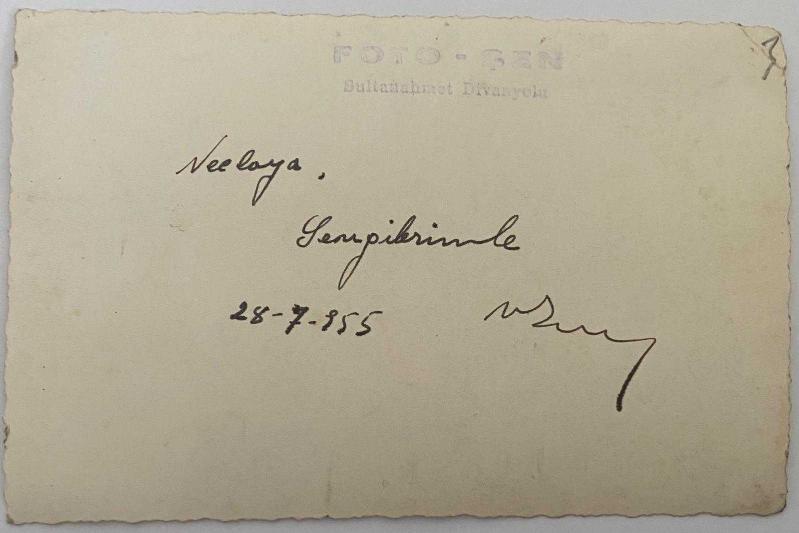 FOTO - ŞEN
Sultanahmet Divanyolu
Neclaya,
Sevgilerimle
28-7-955